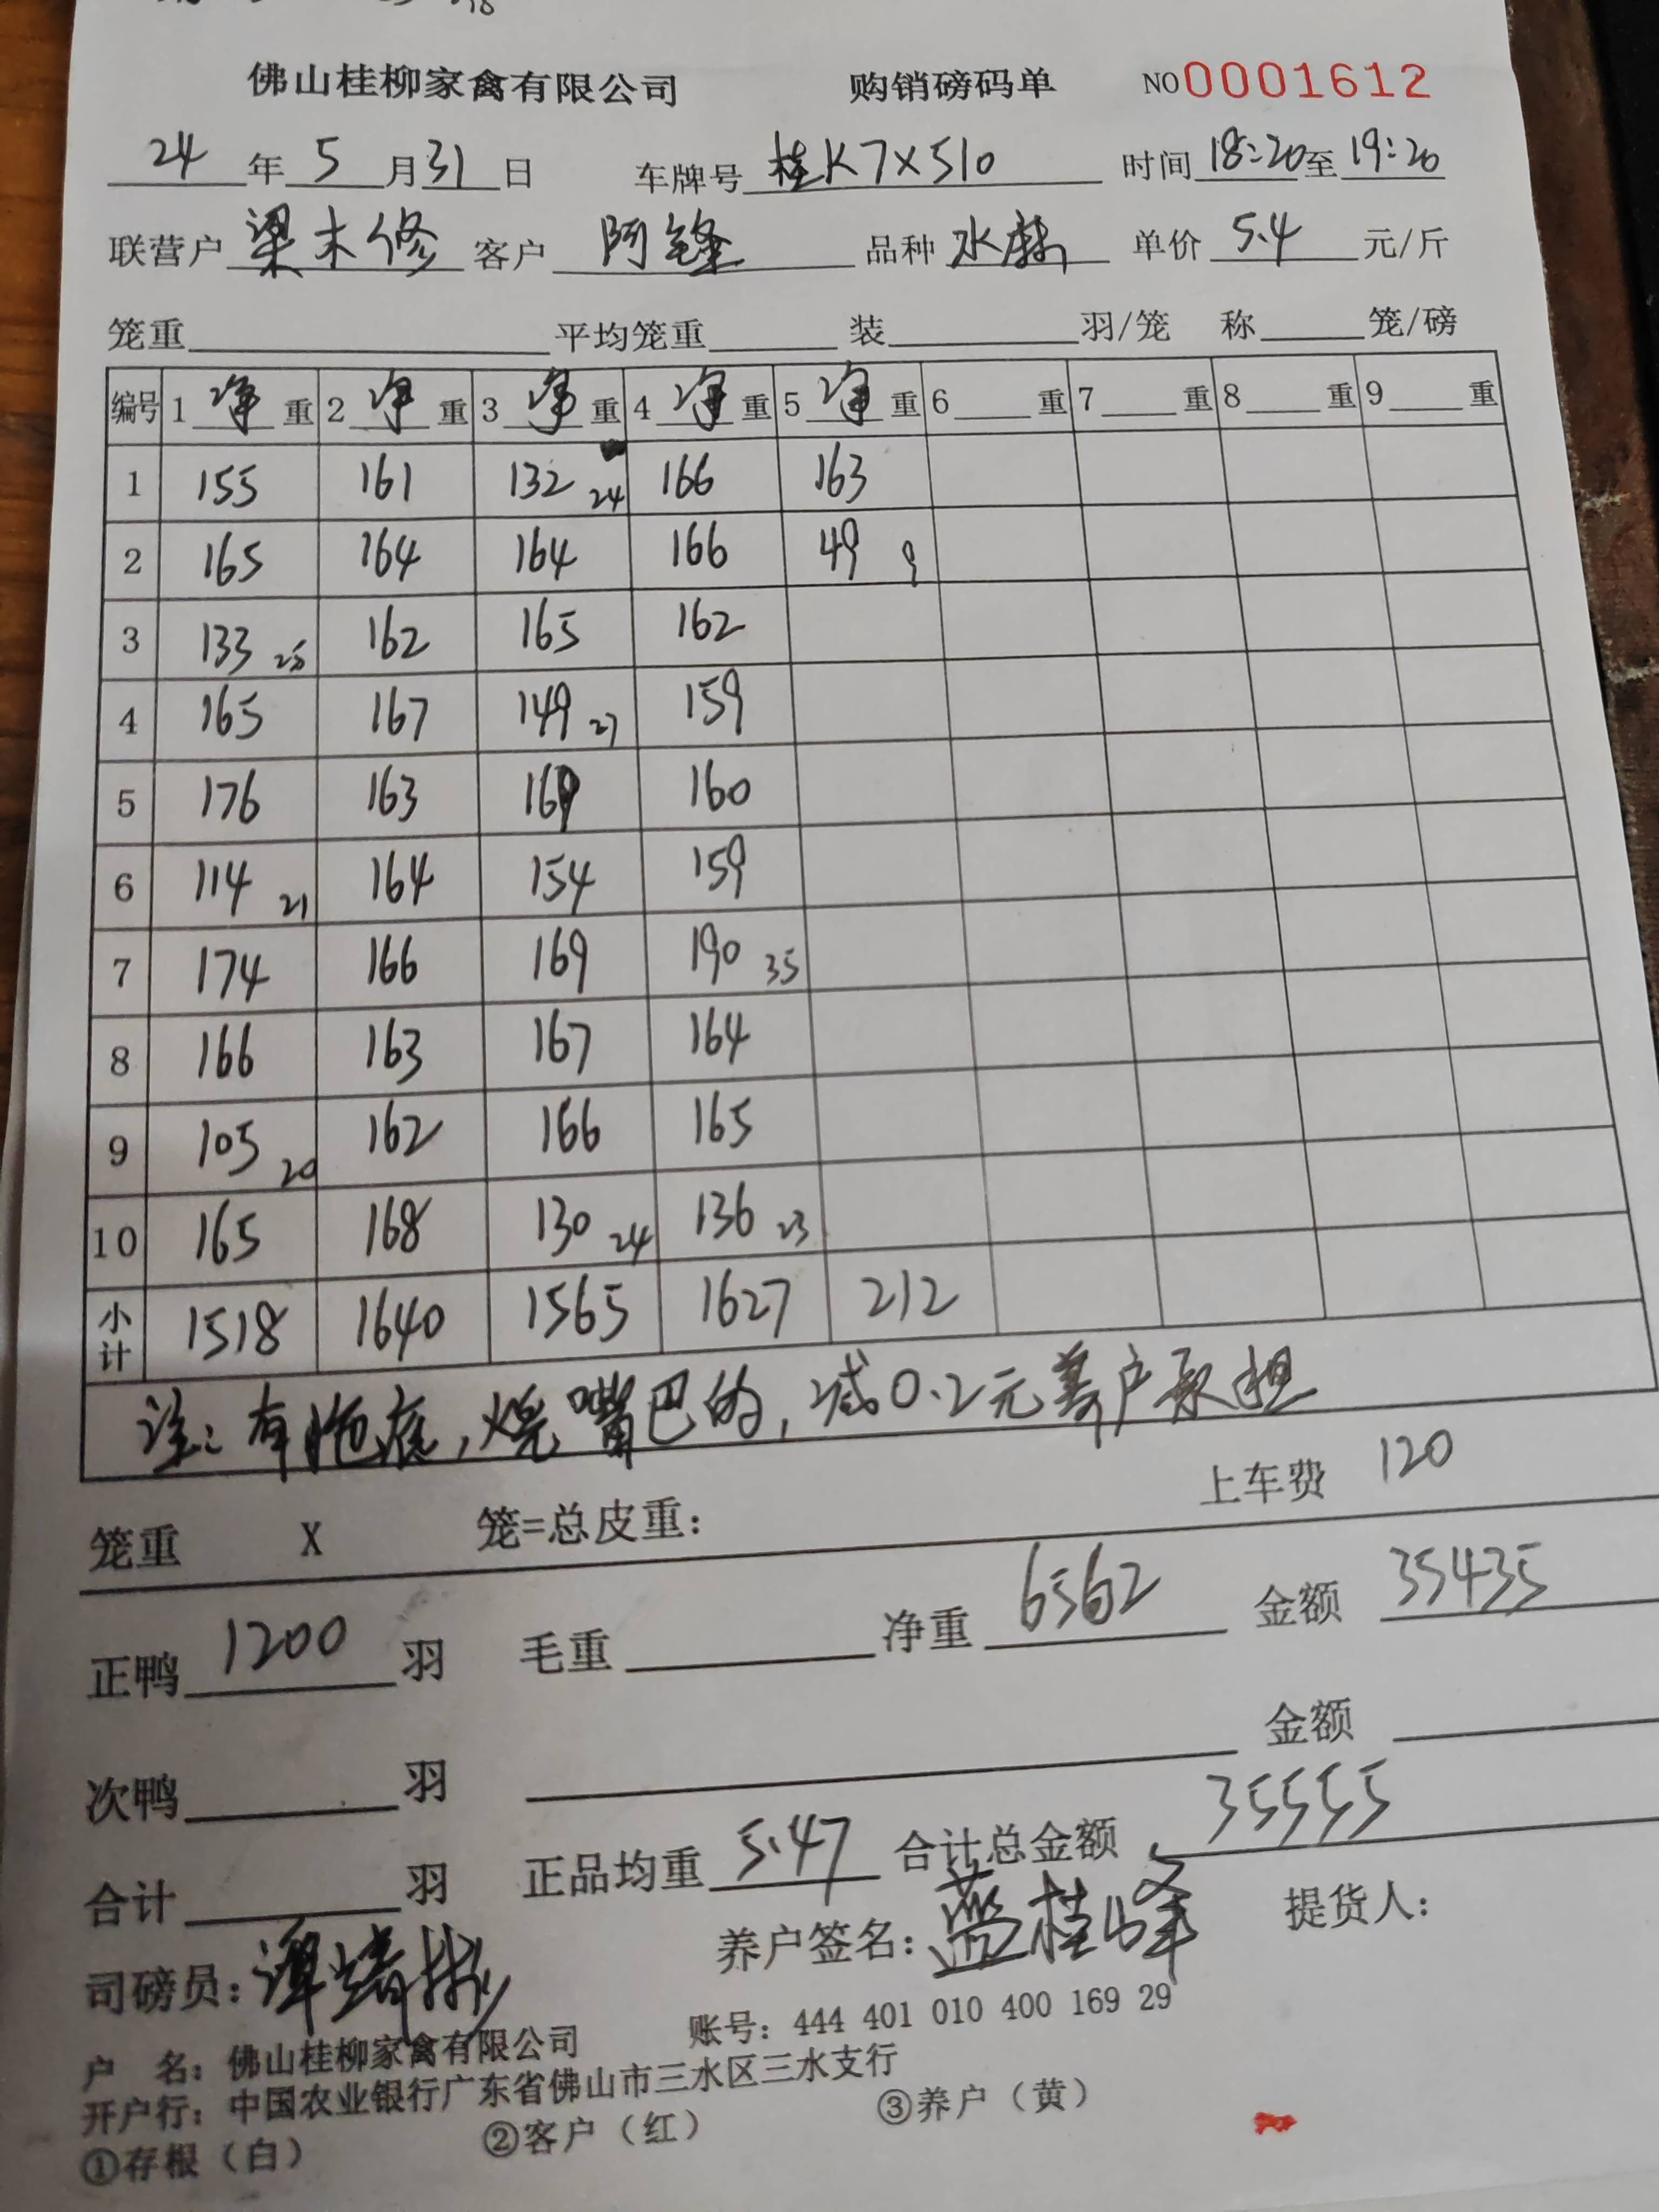 佛山桂柳家禽有限公司 购销磅码单 NO 0001612
24 年 5 月 31 日 车牌号 桂K7X510 时间 18:20 至 19:20
联营户 梁木修 客户 阿锋 品种 水麻 单价 5.4 元/斤
笼重 平均笼重 装 羽/笼 称 笼/磅
编号 1 净 重 2 净 重 3 净 重 4 净 重 5 净 重 6 重 7 重 8 重 9 重
1 155 161 132 24 166 163
2 165 164 164 166 49 9
3 133 25 162 165 162
4 165 167 149 27 159
5 176 163 169 160
6 114 21 164 154 159
7 174 166 169 190 35
8 166 163 167 164
9 105 20 162 166 165
10 165 168 130 24 136 23
小计 1518 1640 1565 1627 212
注:有拖底,烧嘴巴的,减0.2元养户承担
上车费 120
笼重 X 笼=总皮重:
正鸭 1200 羽 毛重 净重 6562 金额 35435
次鸭 羽 金额
合计 羽 正品均重 5.47 合计总金额 35555
司磅员: 养户签名: 蓝桂峰 提货人:
户 名: 佛山桂柳家禽有限公司 账号: 444 401 010 400 169 29
开户行: 中国农业银行广东省佛山市三水区三水支行
①存根(白) ②客户(红) ③养户(黄)